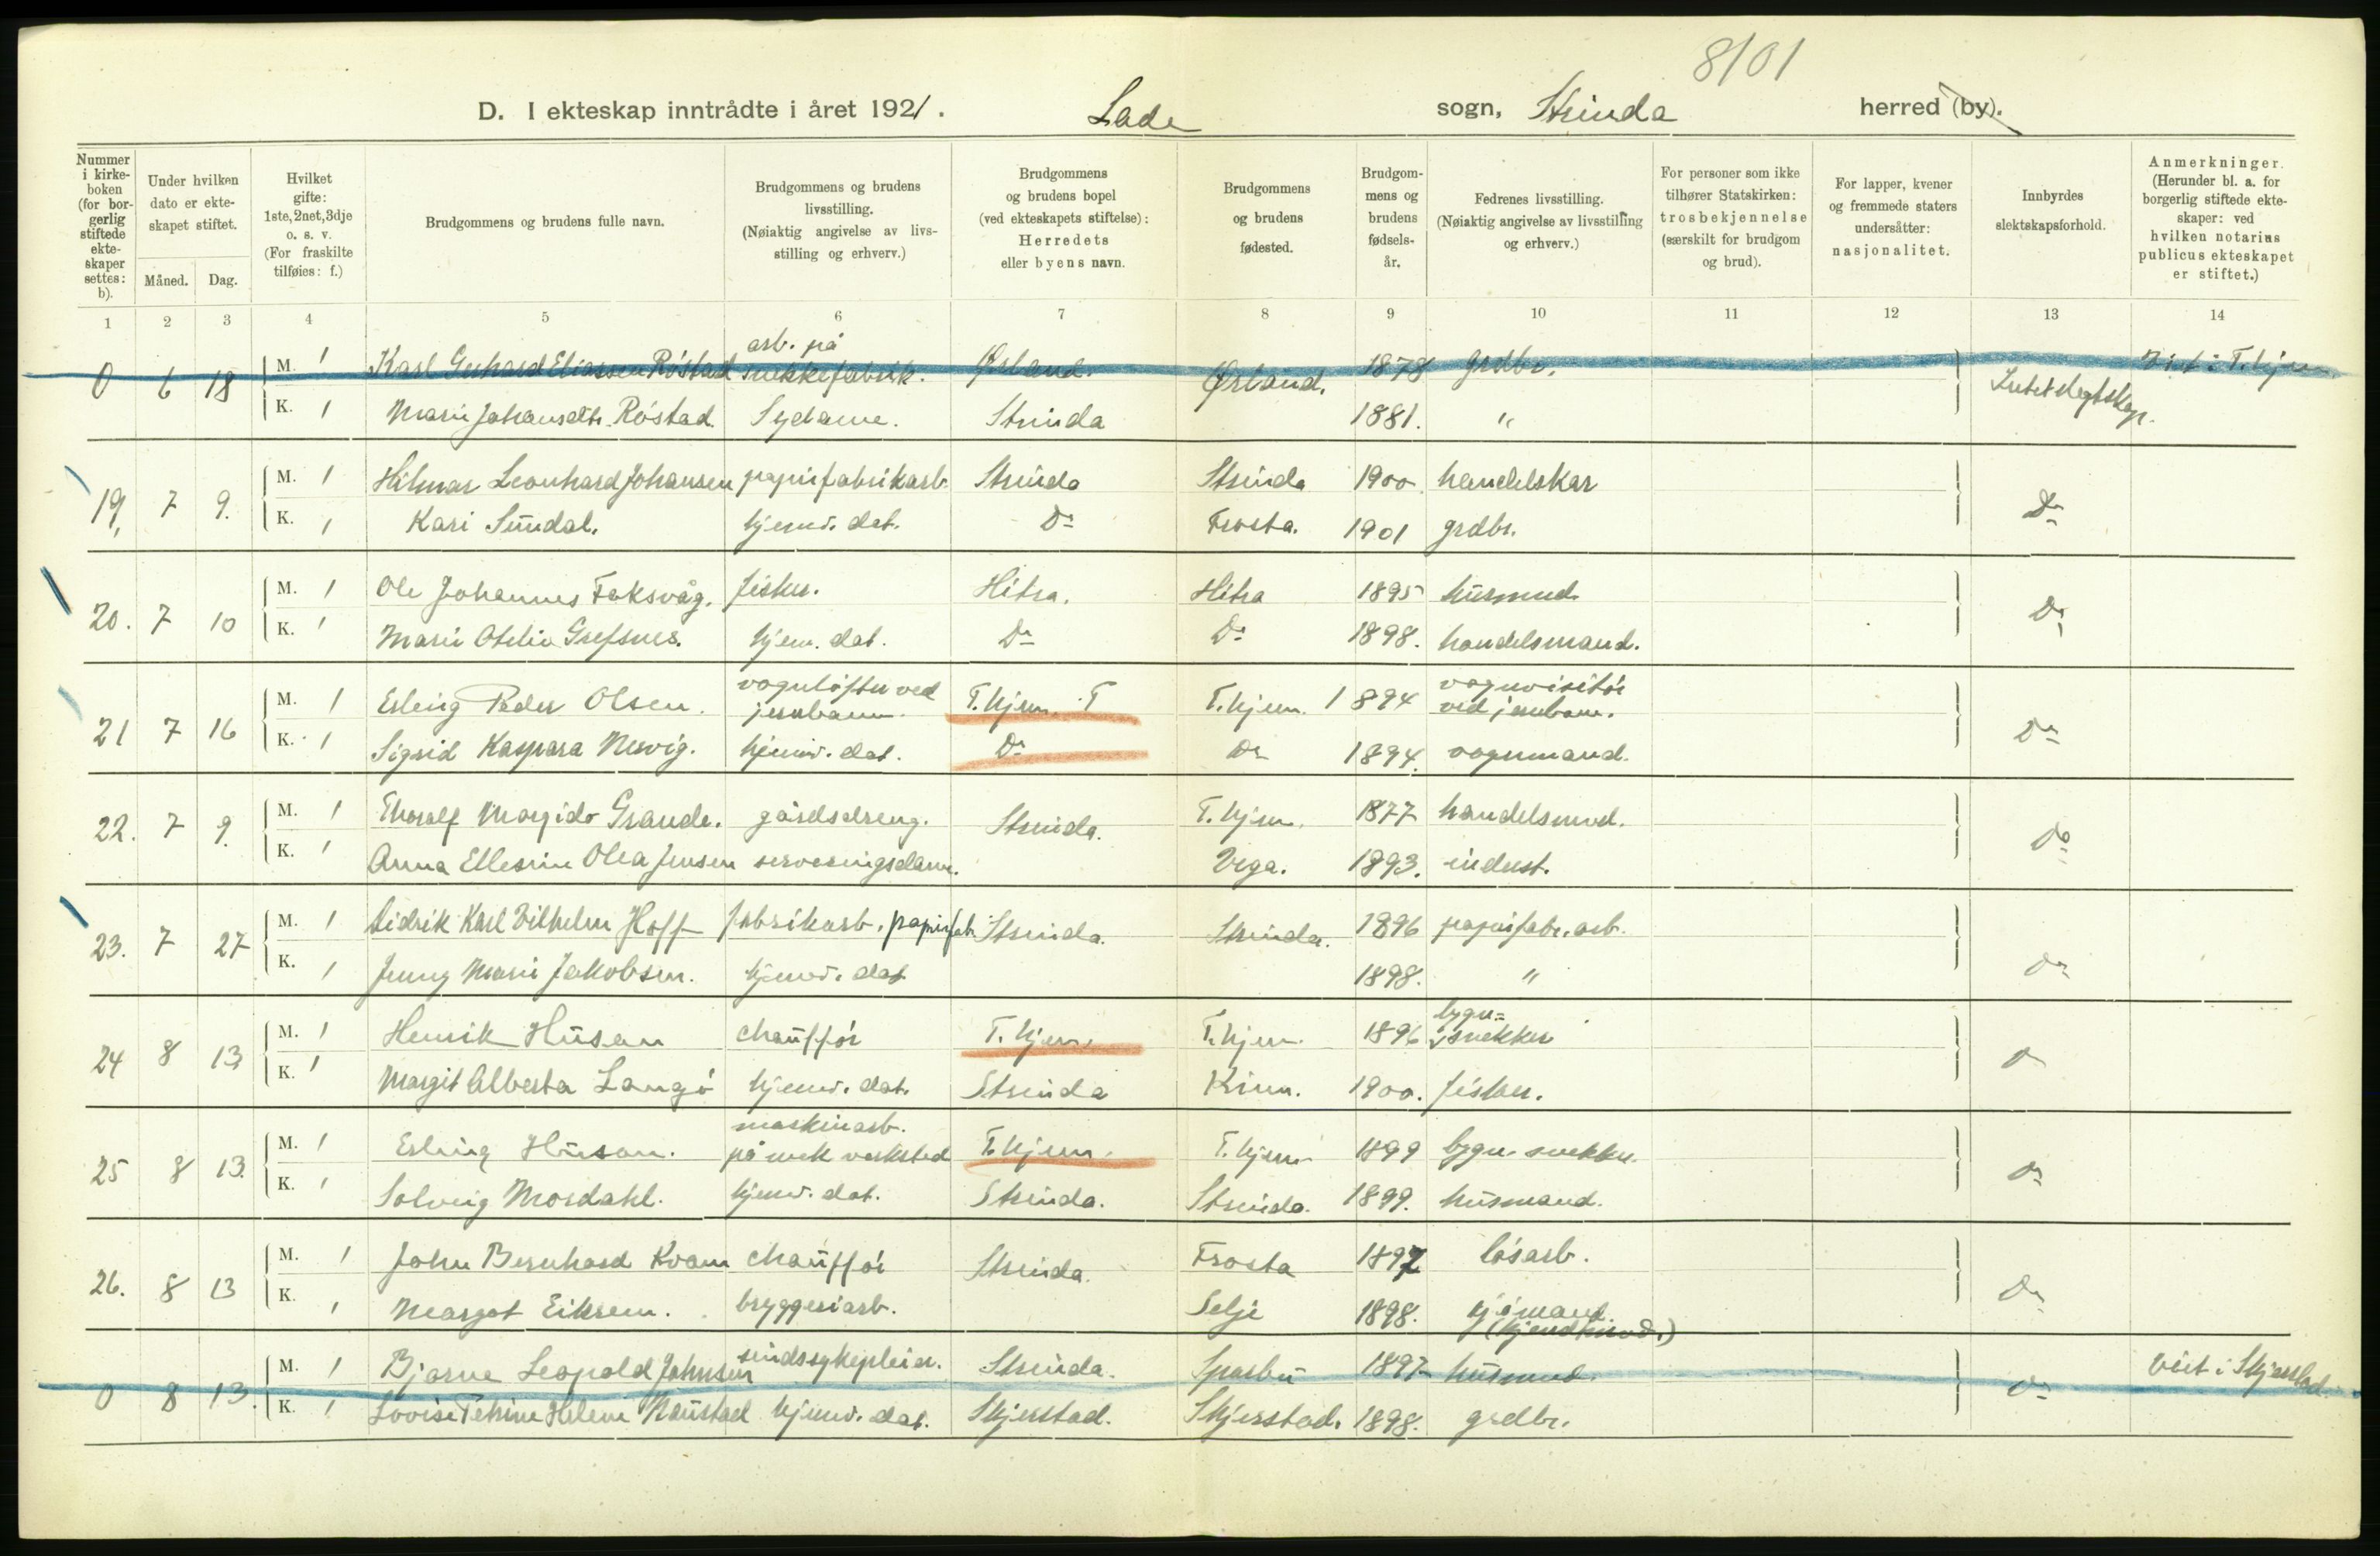 8101
D. I ekteskap inntrådte i året 1921. Lade sogn, Strinda herred (by).
Nummer i kirke-boken (for bor-gerlig stiftede ekte-skaper settes: b).
Under hvilken dato er ekte-skapet stiftet.
Måned. Dag.
Hvilket gifte: 1ste, 2net, 3dje o. s. v. (For fraskilte tilføies: f.)
Brudgommens og brudens fulle navn.
Brudgommens og brudens livsstilling. (Nøiaktig angivelse av livs-stilling og erhverv.)
Brudgommens og brudens bopel (ved ekteskapets stiftelse): Herredets eller byens navn.
Brudgommens og brudens fødested.
Brudgom-mens og brudens fødsels-år.
Fedrenes livsstilling. (Nøiaktig angivelse av livsstilling og erhverv.)
For personer som ikke tilhører Statskirken: trosbekjennelse (særskilt for brudgom og brud).
For lapper, kvener og fremmede staters undersåtter: nasjonalitet.
Innbyrdes slektskapsforhold.
Anmerkninger. (Herunder bl. a. for borgerlig stiftede ekte-skaper: ved hvilken notarius publicus ekteskapet er stiftet.)
1 2 3 4 5 6 7 8 9 10 11 12 13 14
0 6 18 M. 1 Karl Gerhard Eliassen Röstad arb. på Ørland. Ørland. 1878 grdbr. Intet slegtskap. Viet i T.hjem
K. 1 Marie Johansdtr. Röstad. Sydame. Strinda 1881. "
19, 7 9. M. 1 Hilmar Leonhard Johansen papirfabrikarb. Strinda Strinda 1900 handelskar Do
K. 1 Kari Sundal. hjemv. dat. Do Frosta. 1901 grdbr.
20. 7 10 M. 1 Ole Johannes Faksvåg. fisker. Hitra. Hitra 1895 husmnd. Do
K. 1 Marie Otelie Grefsnes. hjem. dat. Do Do 1898. handelsmand.
21 7 16 M. 1 Erling Peder Olsen. vognløfter ved jernbanen. T.hjem. T T.hjem. 1894 vognvisitör ved jernbane. Do
K. 1 Sigrid Kaspara Nesvig. hjemv. dat. Do Do 1894. vognmand.
22. 7 9. M. 1 Thoralf Margido Grande. gårdsdreng. Strinda. T.hjem. 1877 handelsmnd. Do
K. 1 Anna Ellesine Olea Jensen serveringsdame. Vega. 1893. indust.
23. 7 27 M. 1 Didrik Karl Vilhelm Hoff fabrikarb. papirfab. Strinda. Strinda. 1896 papirfabr. arb. Do
K. 1 Jenny Marie Jakobsen. hjemv. dat 1898. "
24 8 13 M. 1 Henrik Husan chaufför T.hjem. T.hjem. 1896 bygn=snekker Do
K. 1 Margit Alberta Langö hjemv. dat. Strinda Kinn. 1900. fisker.
25 8 13. M. 1 Erling Husan. maskinarb. på mek verksted T.hjem. T.hjem 1899 bygn. snekker. Do
K. 1 Solveig Mosdahl. hjemv. dat. Strinda. Strinda. 1899. husmand.
26. 8 13 M. 1 John Bernhard Kvam chaufför Strinda. Frosta 1897 lösarb. Do
K. 1 Margot Eikrem. bryggeriarb. Selje 1898. sjömand
0 8 13. M. 1 Bjarne Leopold Johnsen sindssykepleier. Strinda. Sparbu 1897 husmnd. Do Viet i Skjerstad.
K. 1 Lovise Petrine Helene Naustad hjemv. dat. Skjerstad. Skjerstad. 1898. grdbr.